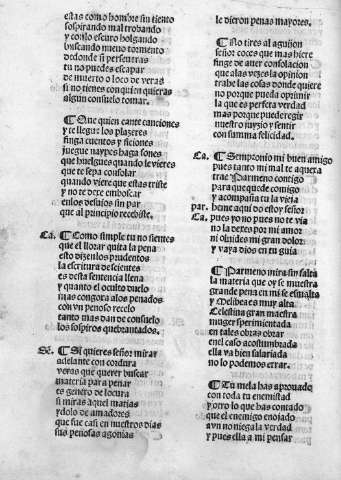 estas como hombre sin tiento
sospirando mal trobando
y con lo escuro holgando
buscando nueuo tormento
de donde si perseueras
tu no puedes escapar
de muerto o loco de veras
si no tienes con quien quieras
algun consuelo tomar.
¶ Que quien cante canciones
y te llegue los plazeres
finga cuentos y ficiones
juegue naypes haga sones
que huelgues quando le vieres
que te sepa consolar
quando viere que estas triste
y no te dexe emboscar
en los desuios sin par
que al principio recebiste.
Ca. ¶ Como simple tu no sientes
que el llorar quita la pena
esto dizen los prudentes
la escritura de scientes
es desta sentencia llena
y quanto el oculto duelo
mas congoxa a los penados
con vn penoso recelo
tanto mas dan de consuelo
los sospiros quebrantados.
Se. ¶ Si quieres señor mirar
adelante con cordura
veras que querer buscar
materia para penar
es genero de locura
si miras aquel macias
ydolo de amadores
que fue casi en nuestros dias
sus penosas agonias
le dieron penas mayores.
¶ No tires al aguijon
señor coces que mas hiere
finge de auer consolacion
que a las vezes la opinion
trahe las cosas donde quiere
no porque pueda oprimir
la que es perfeta verdad
mas porque puede regir
nuestro juyzio y sentir
con summa felicidad.
Ca. ¶ Sempronio mi buen amigo
pues tanto mi mal te aquexa
trae Parmeno contigo
para que quede comigo
y acompaña tu la vieja
par. heme aqui do estoy señor
Ca. pues yo no pues no te via
no la dexes por mi amor
ni oluides mi gran dolor
y vaya dios en tu guia
¶ Parmeno mira sin falta
la materia que oy se muestra
grande pena en mi se esmalta
y Melibea es muy alta
Celestina gran maestra
muger sperimentada
en tales obras obrar
en el caso acostumbrada
ella va bien salariada
no lo podemos errar.
¶ Tu me la has aprouado
con toda tu enemistad
y otro lo que has contado
que el enemigo enojado
avn no niega la verdad
y pues ella a mi pensar